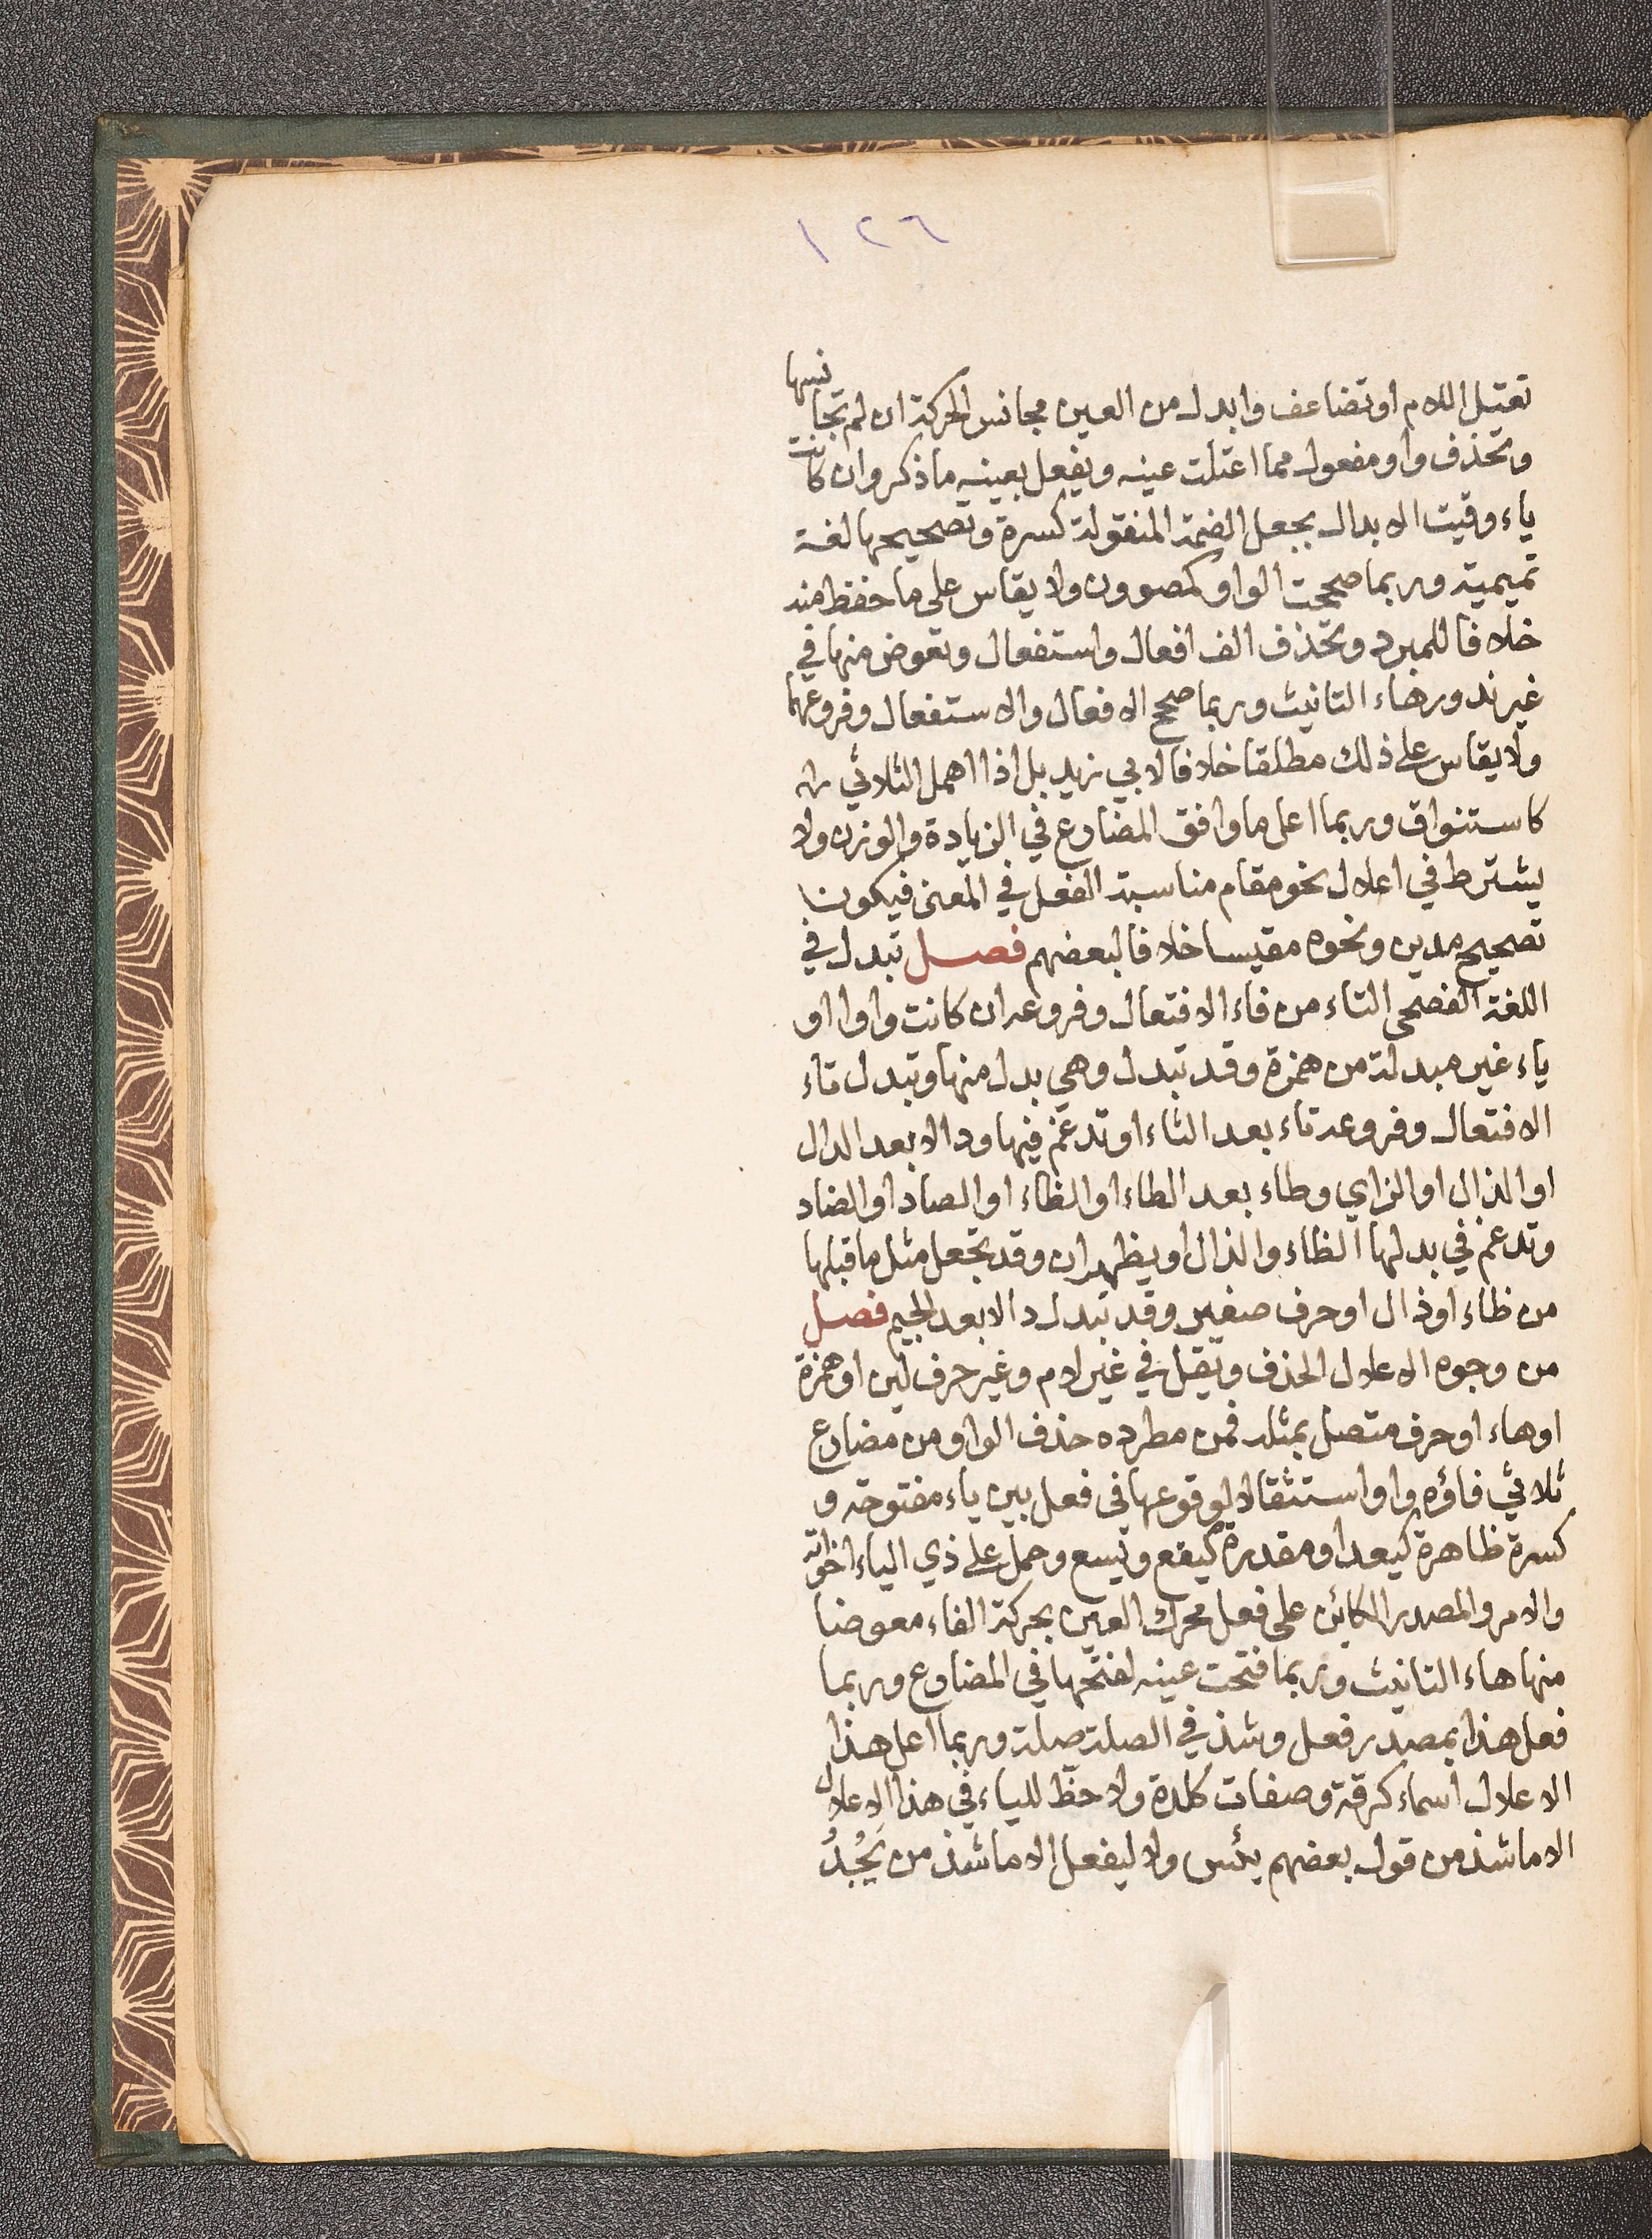 ١٢٦
تعتل اللام او تضاعف وابدل من العين مجانس الحركة ان لم تجانسها
وتحذف واو مفعول مما اعتلت عينه ويفعل بعينه ما ذكر وان كانت
ياء وقيت الابدال بجعل الضمة المنقولة كسرة وتصحيحها لغة
تميمية وربما صححت الواو كمصوون ولا يقاس على ما حفظ منه
خلافا للمبرد وتحذف الف افعال واستفعال وتعوض منها في
غير ندور هاء التانيث وربما صحح الافعال والاستفعال وفروعهما
ولا يقاس على ذلك مطلقا خلافا لابي زيد بل اذا اهمل الثلاثي
كاستنواق وربما اعل ما وافق المضارع في الزيادة والوزن ولا
يشترط في اعلال نحو مقام مناسبة الفعل في المعنى فيكون
تصحيح مدين ونحوه مقيسا خلافا لبعضهم فصل تبدل في
اللغة الفصحى التاء من فاء الافتعال وفروعه ان كانت واوا او
ياء غير مبدلة من همزة وقد تبدل وهي بدل منها وتبدل تاء
الافتعال وفروعه تاء بعد الثاء او تدغم فيها ودالا بعد الدال
او الذال او الزاي وطاء بعد الطاء او الظاء او الصاد او الضاد
وتدغم في بدلها الظاء والذال او يظهران وقد تجعل مثل ما قبلها
من ظاء او ذال او حرف صفير وقد تبدل دالا بعد الجيم فصل
من وجوه الاعلال الحذف ويقل في غير لام وغير حرف لين او همزة
او هاء او حرف متصل بمثله فمن مطرده حذف الواو من مضارع
ثلاثي فاؤه واو استثقالا لوقوعها في فعل بين ياء مفتوحة و
كسرة ظاهرة كيعد او مقدرة كيقع ويسع وحمل على ذي الياء اخواته
والامر والمصدر الكائن على فعل محرك العين بحركة الفاء معوضا
منها هاء التانيث وربما فتحت عينه لفتحها في المضارع وربما
فعل هذا بمصدر فعل وشذ في الصلة صلة وربما اعل هذا
الاعلال اسماء كرقة وصفات كلدة ولا حظ للياء في هذا الاعلال
الا ما شذ من قول بعضهم يئس ولا ليفعل الا ما شذ من يَجُدُ